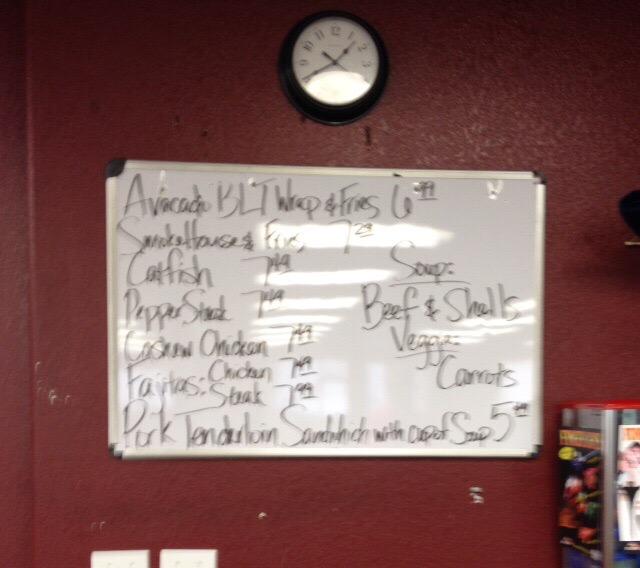 Avacado BLT Wrap & Fries 6.99
SmokeHouse & Fries 7.29
Catfish 7.49
Pepper Steak 7.49
Cashew Chicken 7.49
Fajitas: Chicken 7.49
Steak 7.99
Pork Tenderloin Sandwhich with cup of Soup 5.99
Soup:
Beef & Shells
Veggie:
Carrots